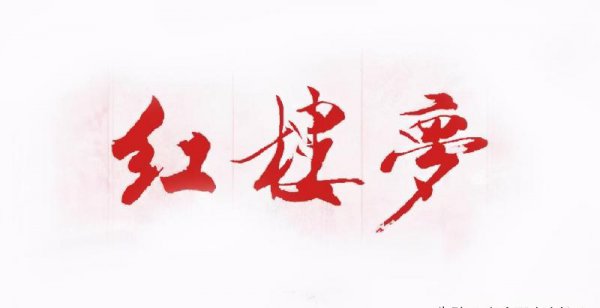 红楼夢